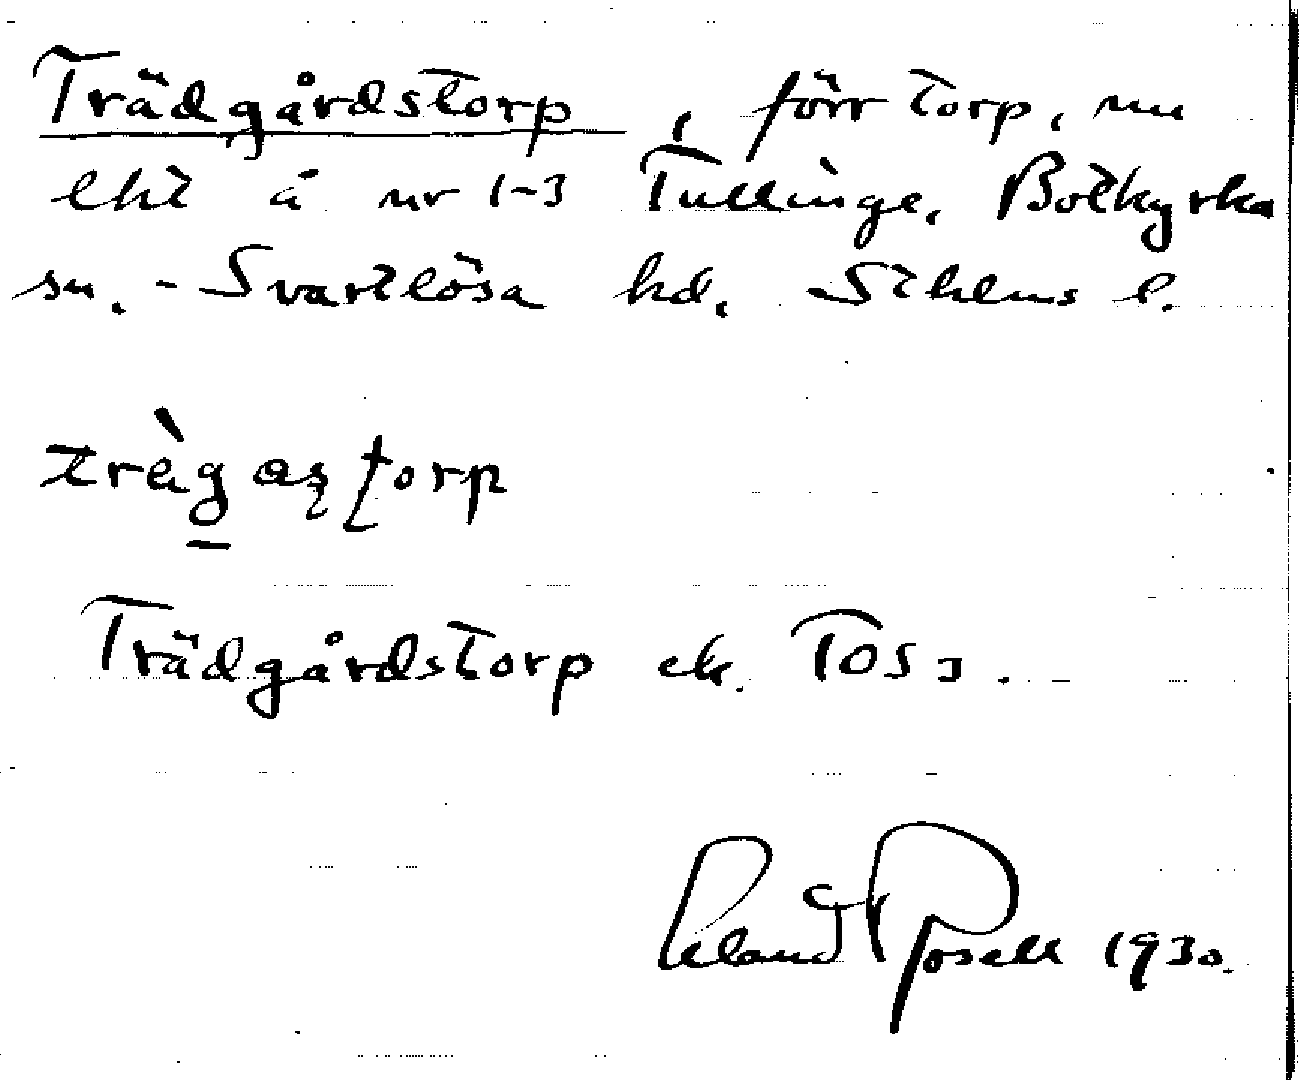 Trädgårdstorp, förr torp, nu
lht å nr 1-3 Tullinge, Botkyrka
sn. - Svartlösa hd. Sthlms l.
trè̀g aʂ ʈorp
Trädgårdstorp ek. T OS 3.
Erland Rosell 1930.